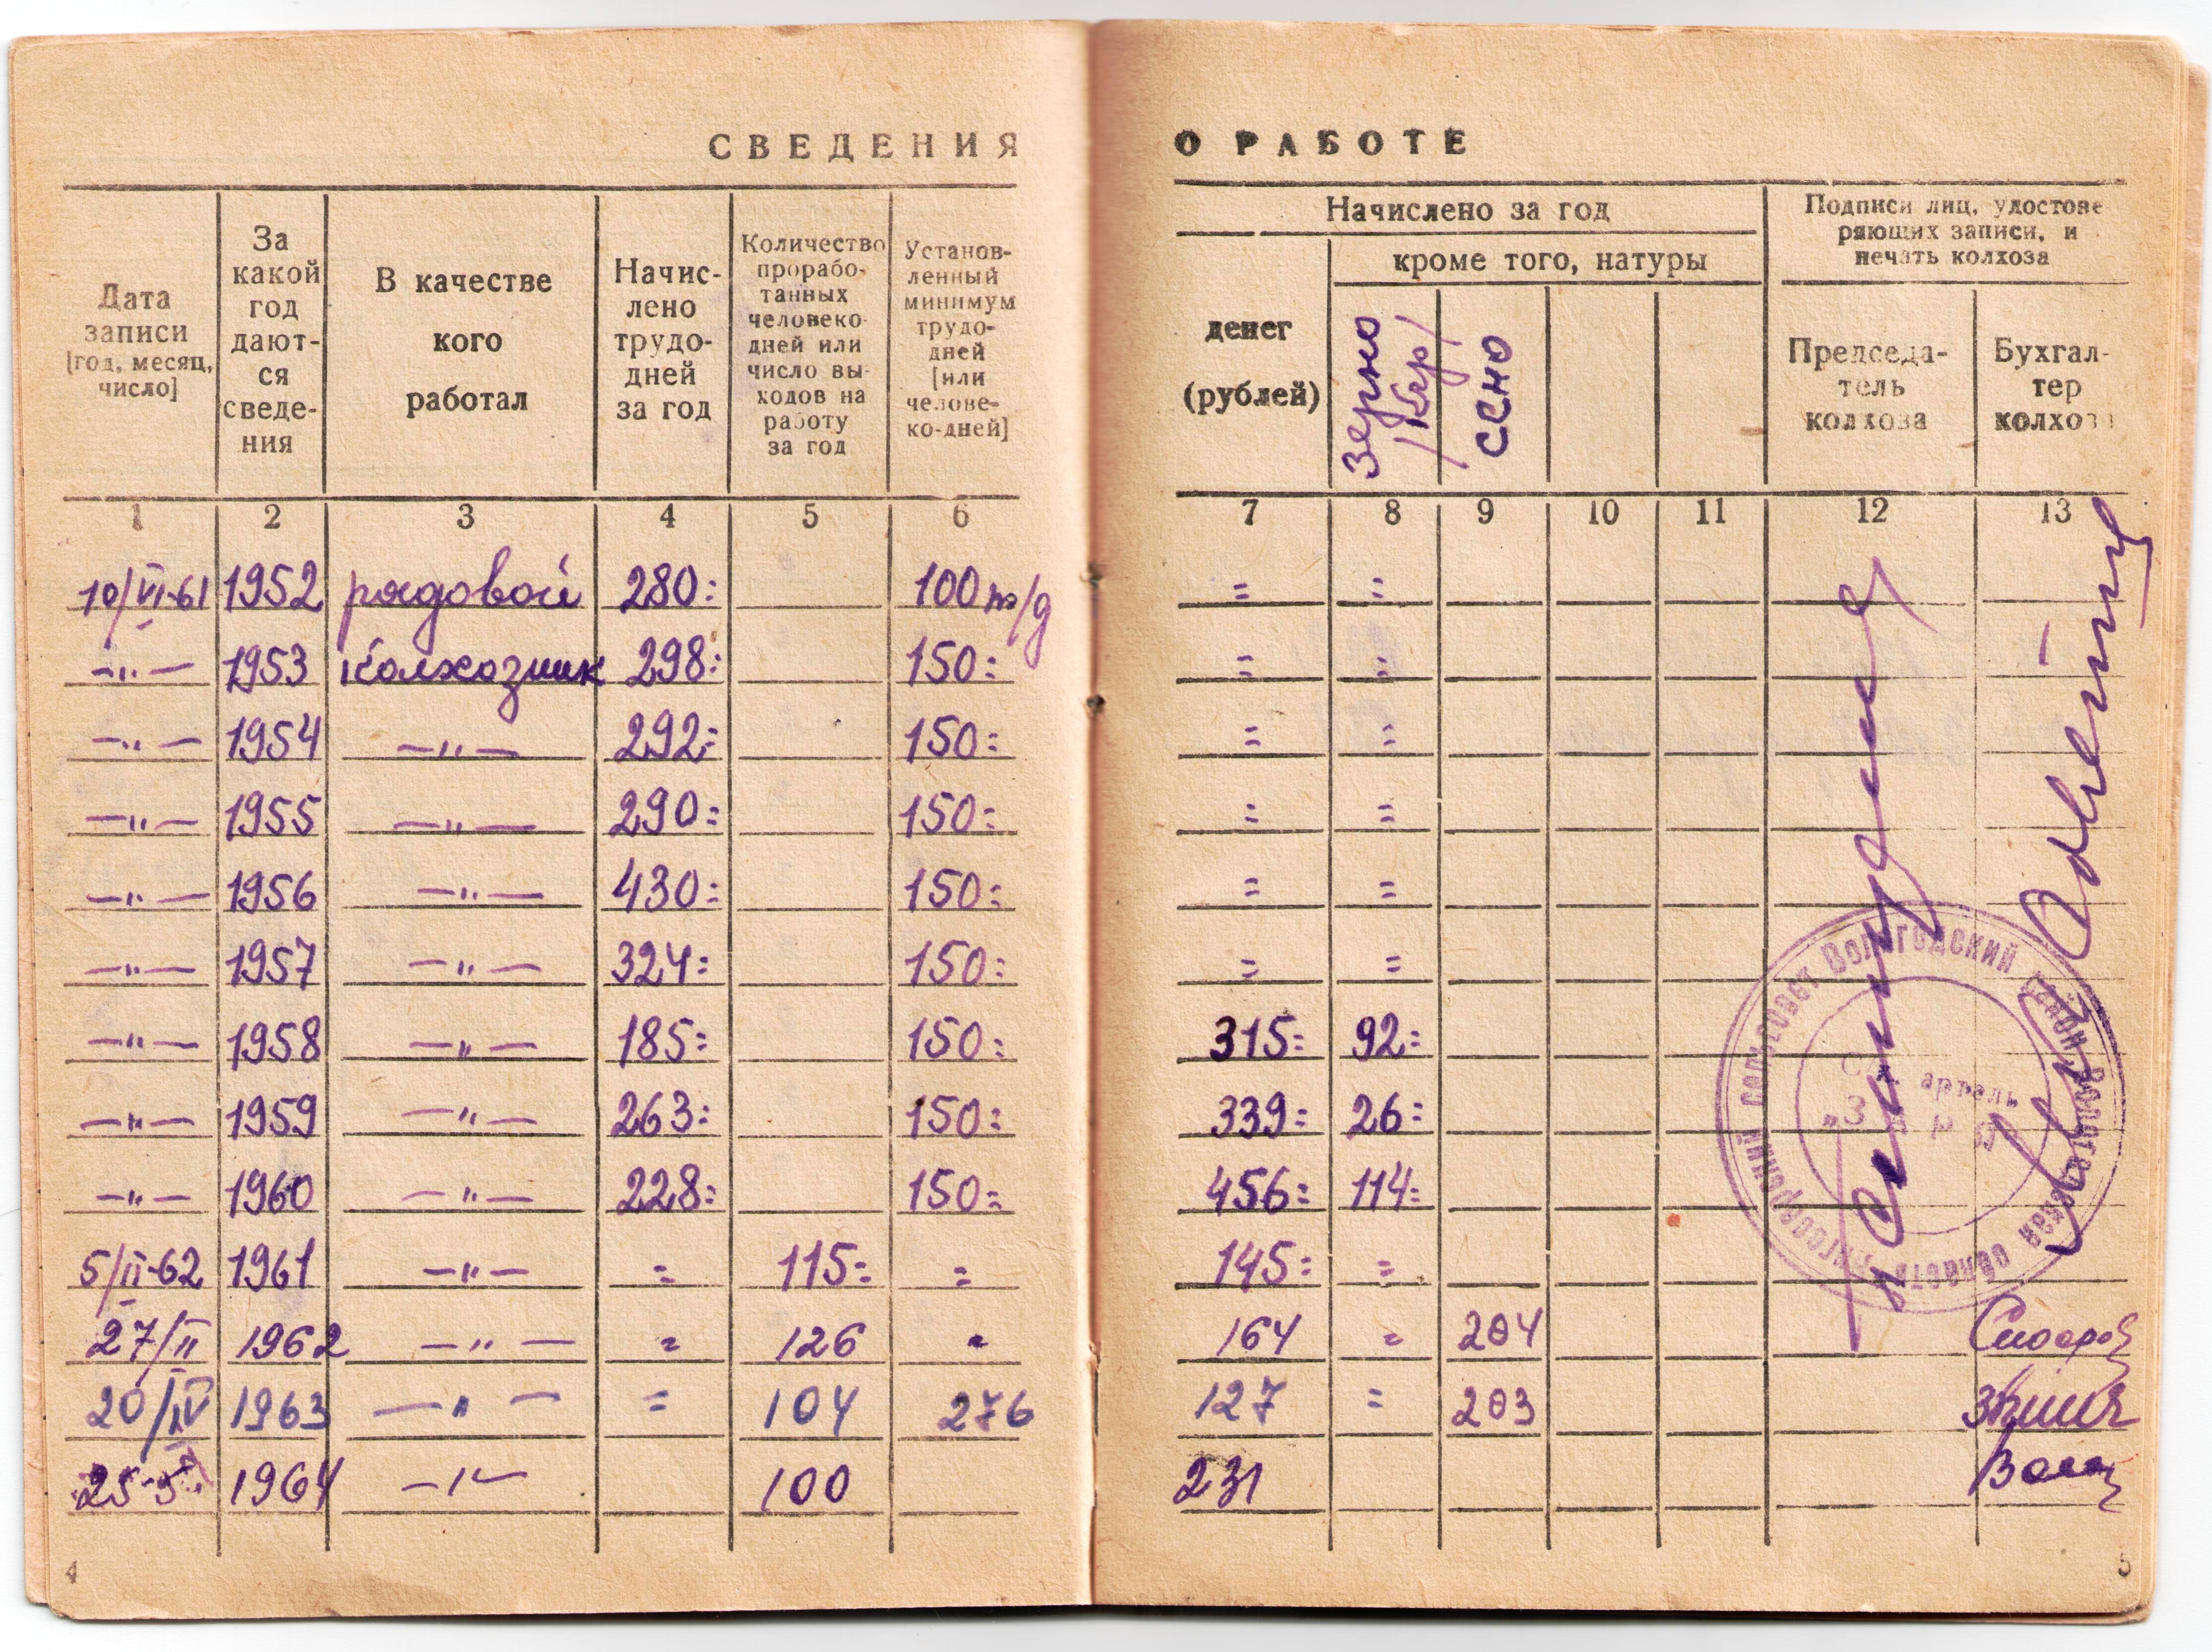 СВЕДЕНИЯ О РАБОТЕ
Дата записи [год, месяц, число]
За какой год дают-ся сведе-ния
В качестве кого работал
Начис-лено трудо-дней за год
Количество прорабо-танных человеко-дней или число вы-ходов на работу за год
Установ-ленный минимум трудо-дней [или челове-ко-дней]
Начислено за год
денег (рублей)
кроме того, натуры
зерно /кгр/
сено
Подписи лиц, удостове ряющих записи, и печать колхоза
Председа-тель колхоза
Бухгал-тер колхоза
1 2 3 4 5 6 7 8 9 10 11 12 13
10/VI-61 1952 рядовой 280= 100 т/д = =
—"— 1953 колхозник 298= 150= = =
—"— 1954 —"— 292= 150= = =
—"— 1955 —"— 290= 150= = =
—"— 1956 —"— 430= 150= = =
—"— 1957 —"— 324= 150= = =
—"— 1958 —"— 185= 150= 315= 92=
—"— 1959 —"— 263= 150= 339= 26=
—"— 1960 —"— 228= 150= 456= 114=
5/II-62 1961 —"— = 115= = 145= =
27/II 1962 —"— = 126 = 164 = 204
20/IV 1963 —"— = 104 276 127 = 203
1964 —"— 100 231
сельсовет Вологодский район Вологодская область
артель
4
5